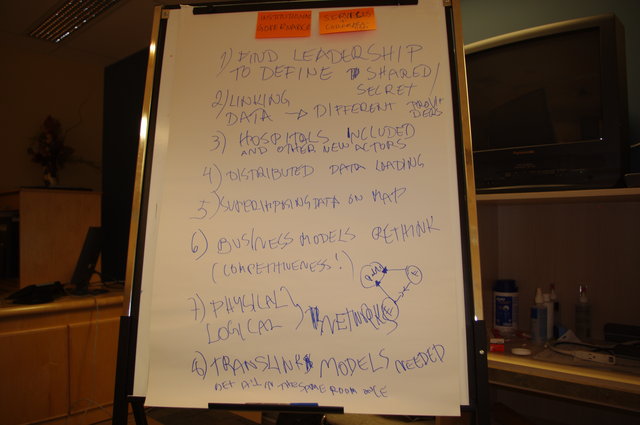 INSTITUTIONAL GOVERNANCE
SERVICES
1) FIND LEADERSHIP
TO DEFINE SHARED/
SECRET
2) LINKING
DATA → DIFFERENT PROVIDERS
3) HOSPITALS INCLUDED
AND OTHER NEW ACTORS
4) DISTRIBUTED DATA LOADING
5) SUPERIMPOSING DATA ON MAP
6) BUSINESS MODELS RETHINK
(COMPETITIVENESS!)
7) PHYSICAL
LOGICAL
NETWORKS
8) MODELS NEEDED
GET ALL IN THE SAME ROOM ONCE
Panasonic